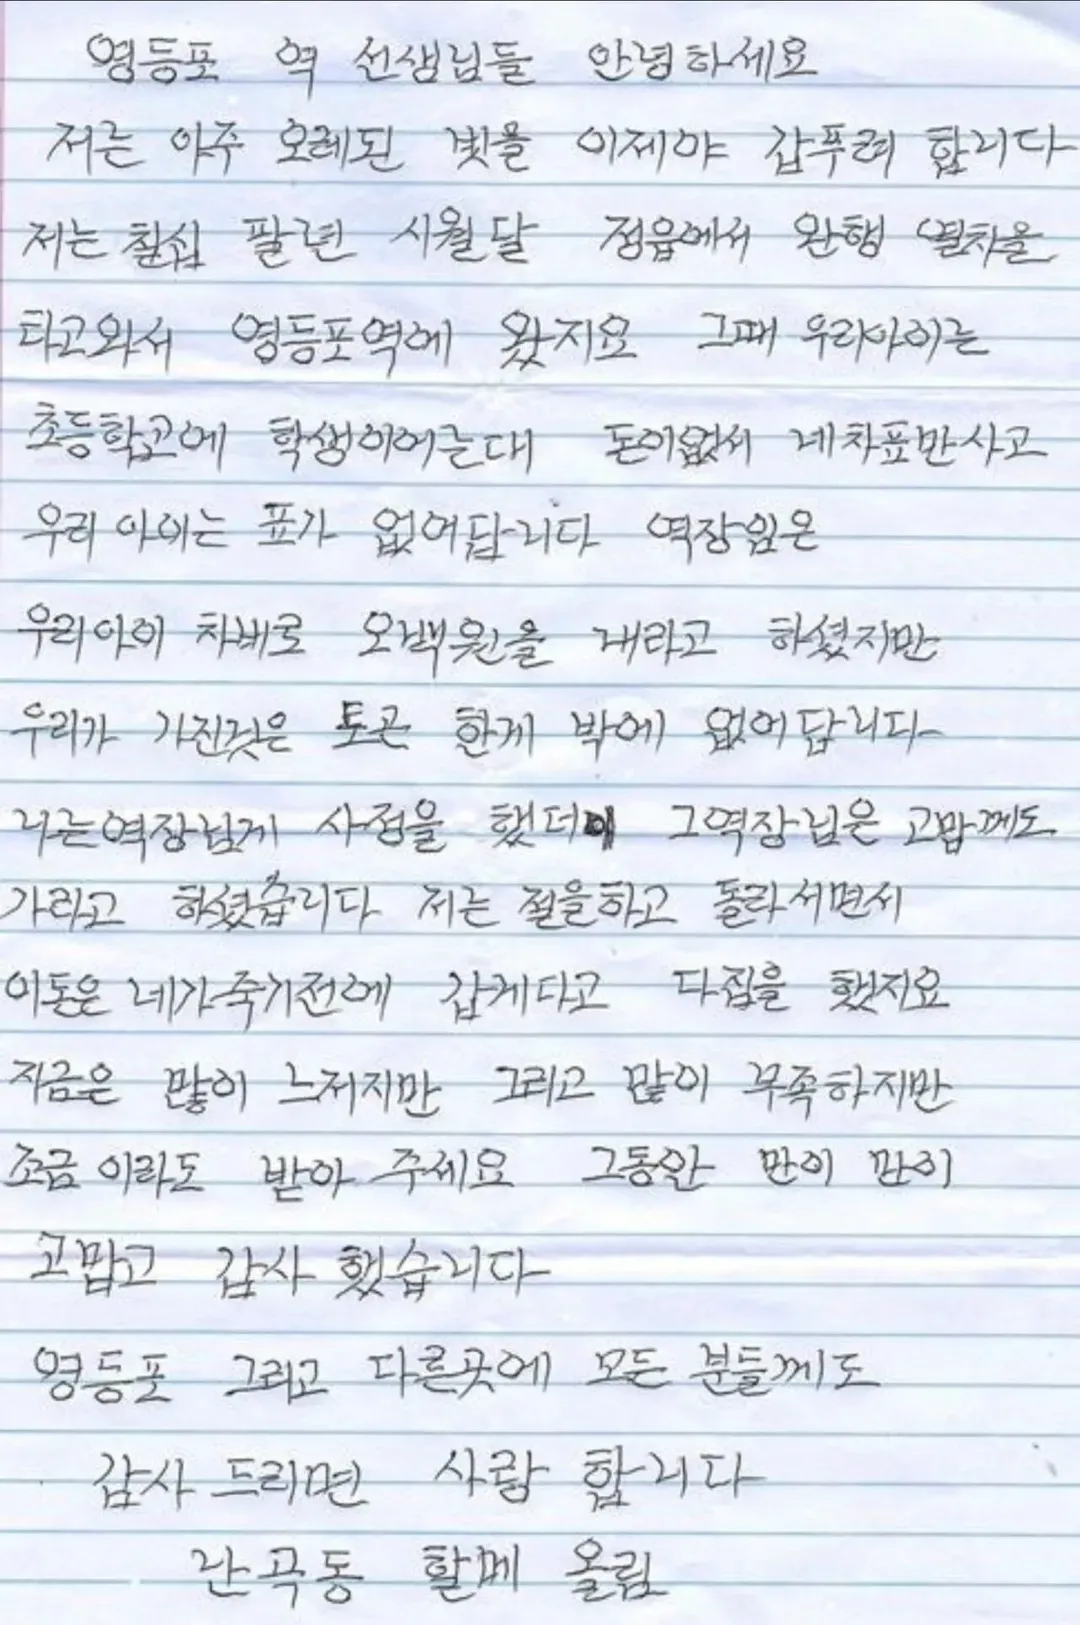 영등포 역 선생님들 안녕하세요
저는 아주 오레된 빛을 이제야 갑푸려 합니다
저는 칠십 팔련 시월달 정읍에서 완행 열차을
타고와서 영등포역에 왔지요 그때 우리아이는
초등학교에 학생이어는대 돈이없서 네차표만사고
우리 아이는 표가 없어답니다 역장임은
우리아이 차비로 오백원을 내라고 하셨지만
우리가 가진것은 토큰 한게 박에 없어답니다
나는역장님게 사정을 했더니 그역장님은 고맙께도
가라고 하셨습니다 저는 절을하고 돌라서면서
이돈은 네가죽기전에 갑게다고 다짐을 했지요
지금은 많이 느저지만 그리고 많이 부족하지만
조금 이라도 받아 주세요 그동안 만이 만이
고맙고 감사 했습니다
영등포 그리고 다른곳에 모든 분들께도
감사 드리면 사랑 합니다
난곡동 할메 올림